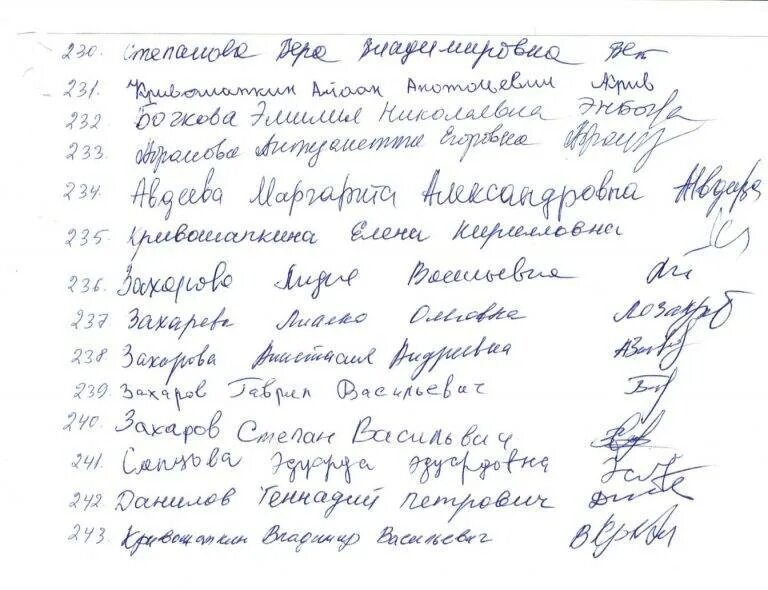 230. Степанова Вера Владимировна Веп
231. Кривошапкин Айаан Анатольевич Крив
232. Бочкова Эмилия Николаевна ЭНБочк
233. Абрамова Антуанетта Егоровна
234. Авдеева Маргарита Александровна Авдеева
235. Кривошапкина Елена Кирилловна
236. Захарова Лидия Васильевна
237 Захарова Ольговна
238 Захарова Анастасия Андреевна
239. Захаров Гаврил Васильевич
240. Захаров Степан Васильвич
241. Слепцова Эдуарда Эдуардовна
242. Данилов Геннадий Петрович
243. Кривошапкин Владимир Васильевич